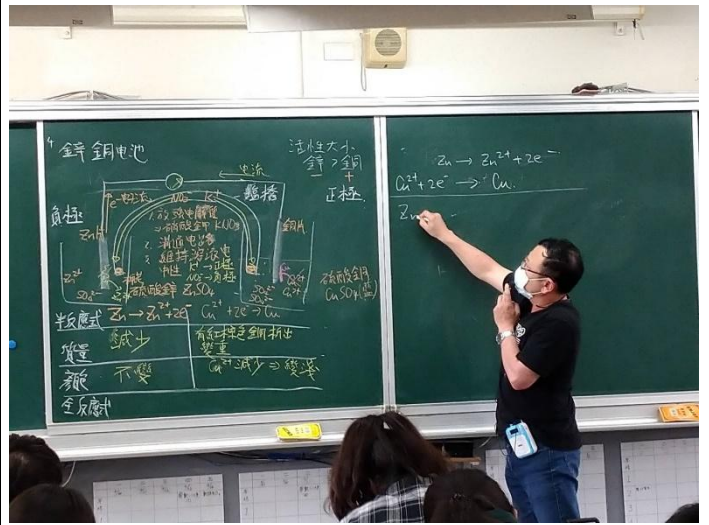 鋅銅电池
活性大小
鋅＞銅
－　＋
正極
电流
e⁻电流
NO₃⁻ K⁺
鹽橋
負極
1.放強电解質
⇒硝酸鉀 KNO₃
2.溝通电路
3.維持溶液电
中性 K⁺→正極
NO₃⁻→負極
Zn片
銅片
Zn²⁺
SO₄²⁻
硫酸鋅 ZnSO₄
SO₄²⁻
SO₄²⁻
Cu²⁺
硫酸銅
CuSO₄(藍)
半反應式 Zn → Zn²⁺+2e⁻ Cu²⁺+2e⁻→Cu
質量 減少 有紅棕色銅析出
變重
顏色 不變 Cu²⁺減少⇒變淺
全反應式
Zn → Zn²⁺+2e⁻
Cu²⁺+2e⁻ → Cu
Zn